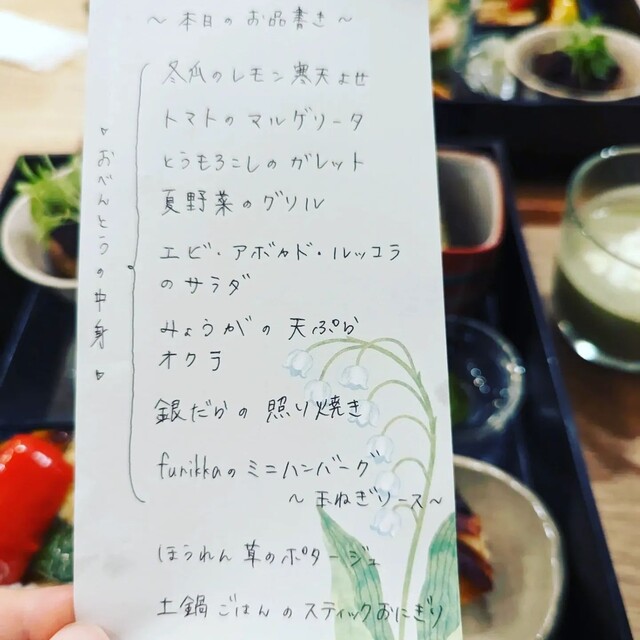 ～本日のお品書き～
冬瓜のレモン寒天よせ
トマトのマルゲリータ
とうもろこしのガレット
夏野菜のグリル
エビ・アボカド・ルッコラ
のサラダ
みょうがの天ぷら
オクラ
銀だらの照り焼き
furikkaのミニハンバーグ
～玉ねぎソース～
おべんとうの中身
ほうれん草のポタージュ
土鍋ごはんのスティックおにぎり